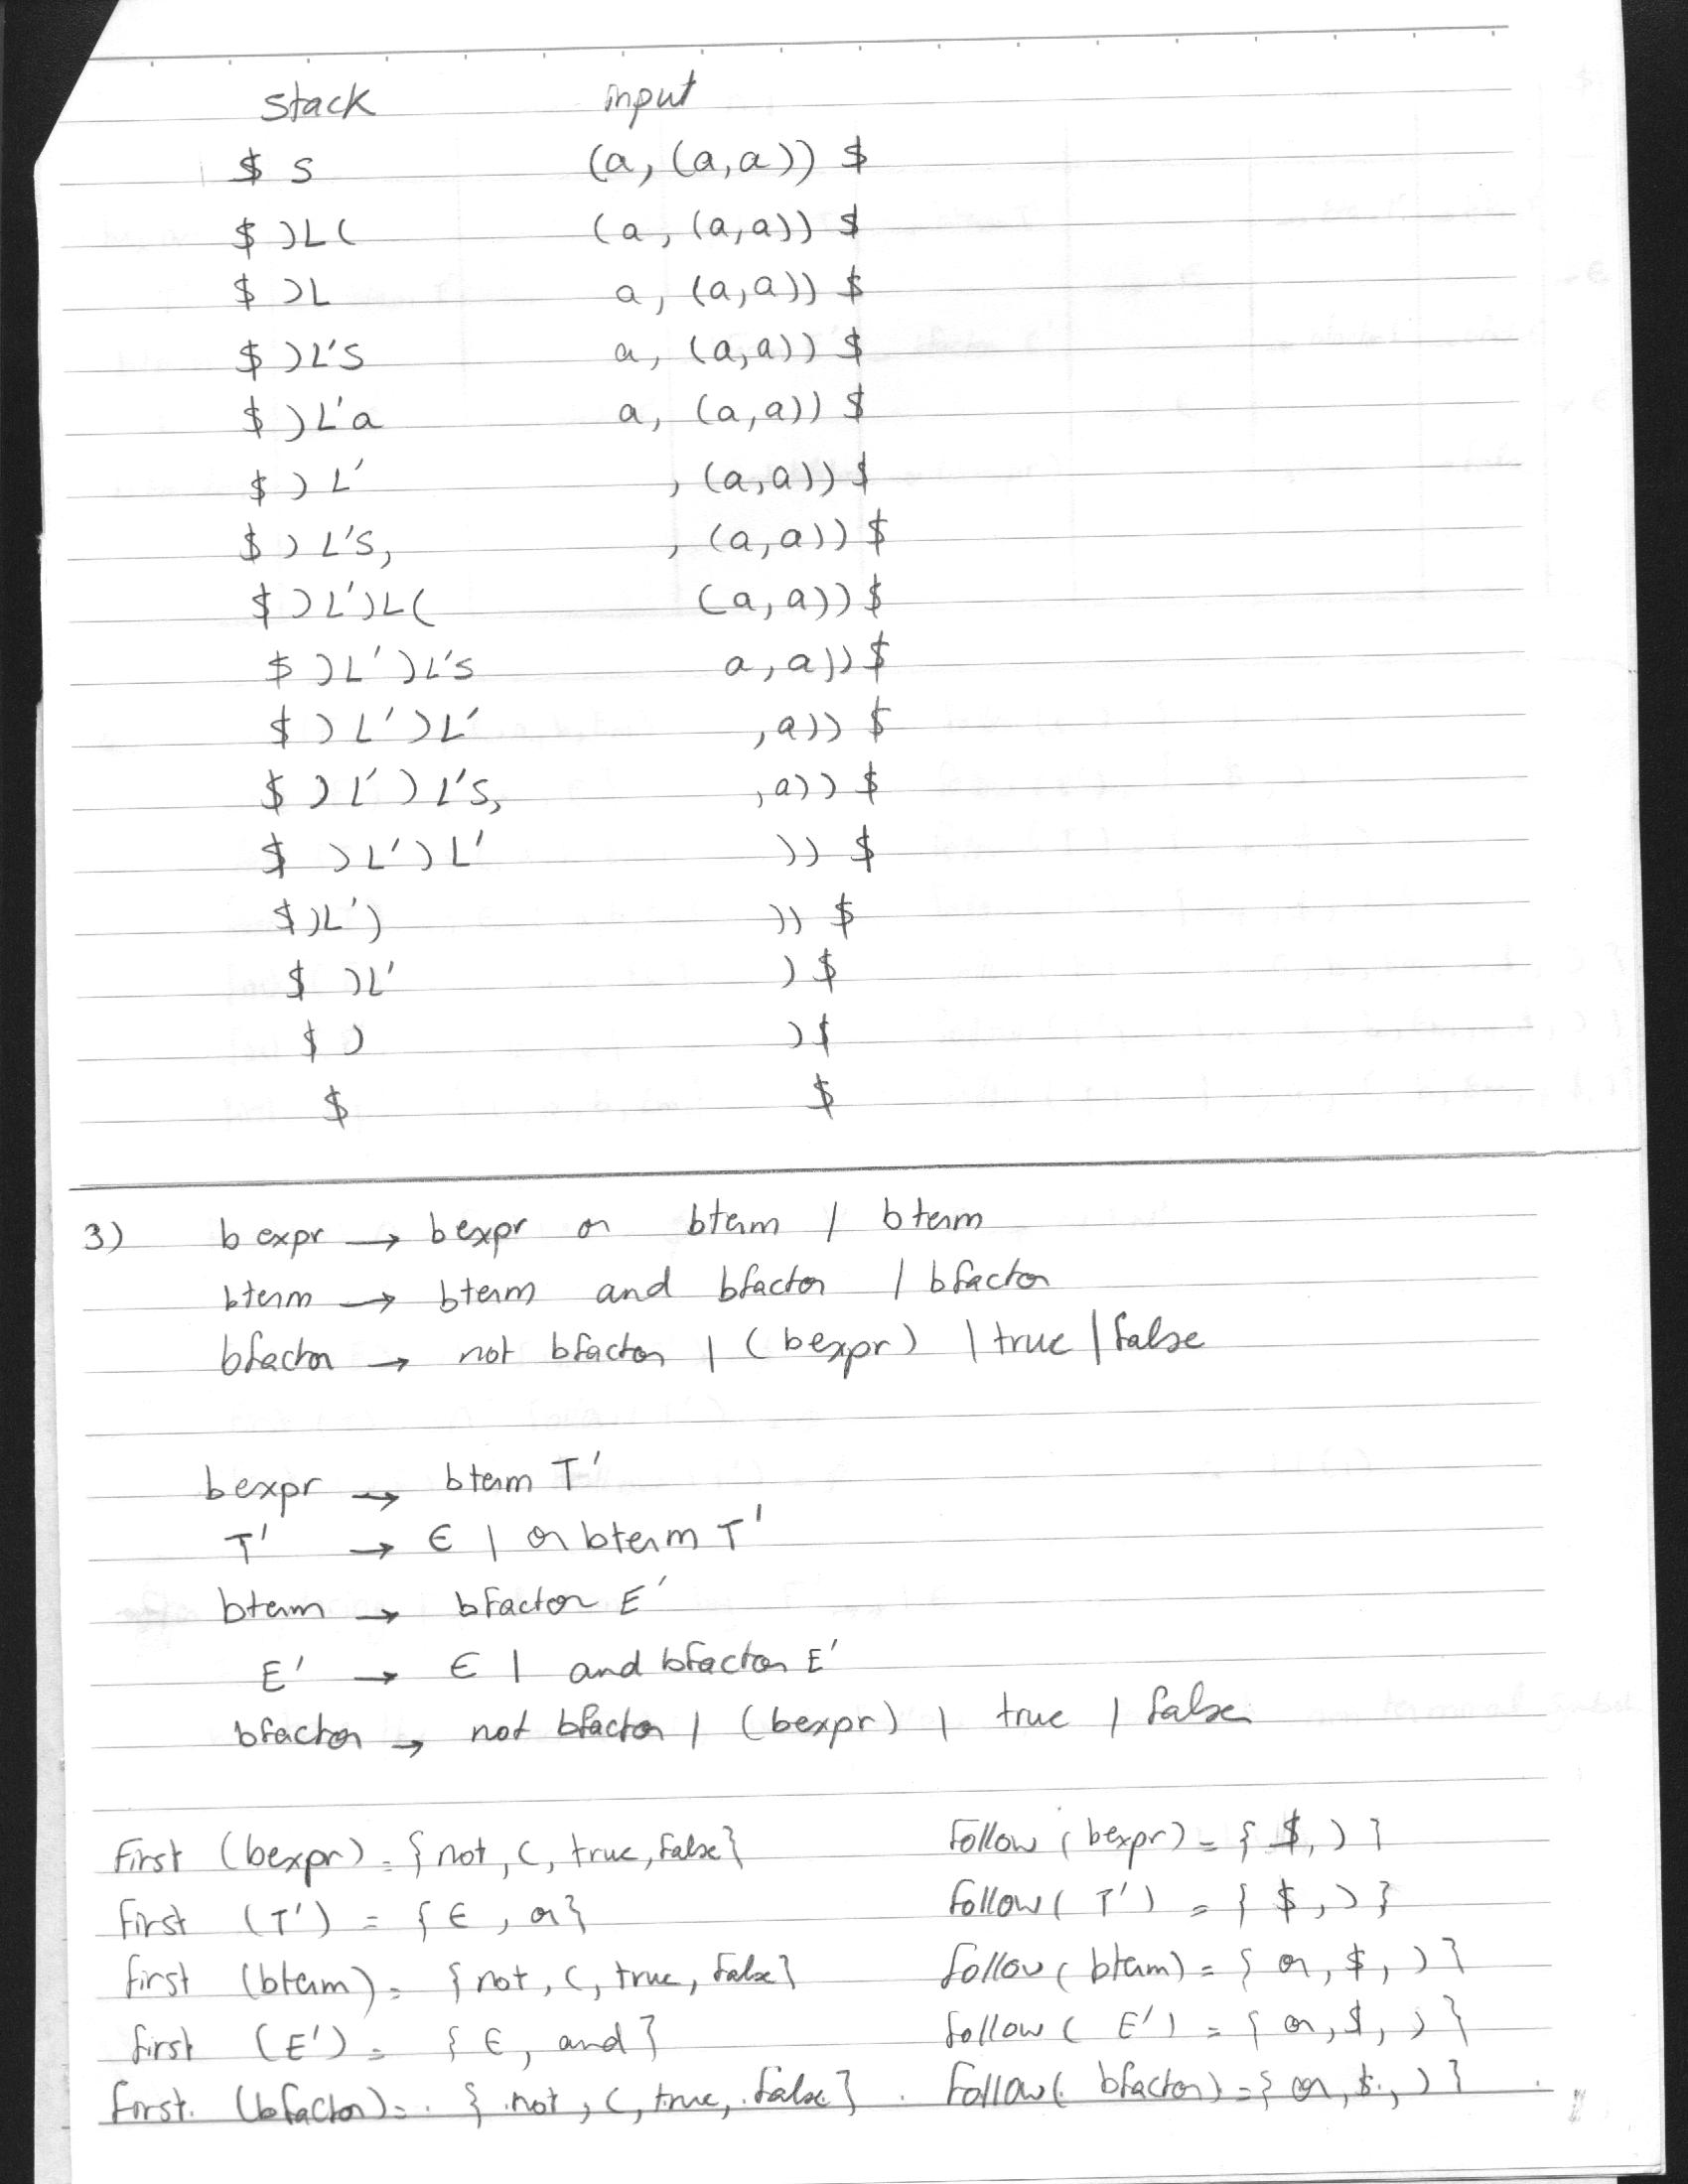 stack input
$ S (a, (a,a)) $
$ )L( (a, (a,a)) $
$ )L a, (a,a)) $
$ )L'S a, (a,a)) $
$ )L'a a, (a,a)) $
$ ) L' , (a,a)) $
$ ) L'S, , (a,a)) $
$ ) L')L( (a, a)) $
$ )L')L's a, a)) $
$ ) L')L' ,a)) $
$ ) L') L'S, ,a)) $
$ ) L') L' )) $
$ )L') )) $
$ )L' ) $
$ ) ) $
$ $
3) bexpr → bexpr or bterm | bterm
bterm → bterm and bfactor | bfactor
bfactor → not bfactor | (bexpr) | true | false
bexpr → bterm T'
T' → ϵ | or bterm T'
bterm → bfactor E'
E' → ϵ | and bfactor E'
bfactor → not bfactor | (bexpr) | true | false
First (bexpr) = { not, (, true, false} Follow (bexpr) = { $, ) }
First (T') = { ϵ, or} Follow ( T') = { $, ) }
First (bterm) = { not, (, true, false} Follow ( bterm) = { or, $, ) }
First (E') = { ϵ, and } Follow ( E') = { or, $, ) }
First (bfactor) = { not, (, true, false} Follow ( bfactor) = { or, $, ) }